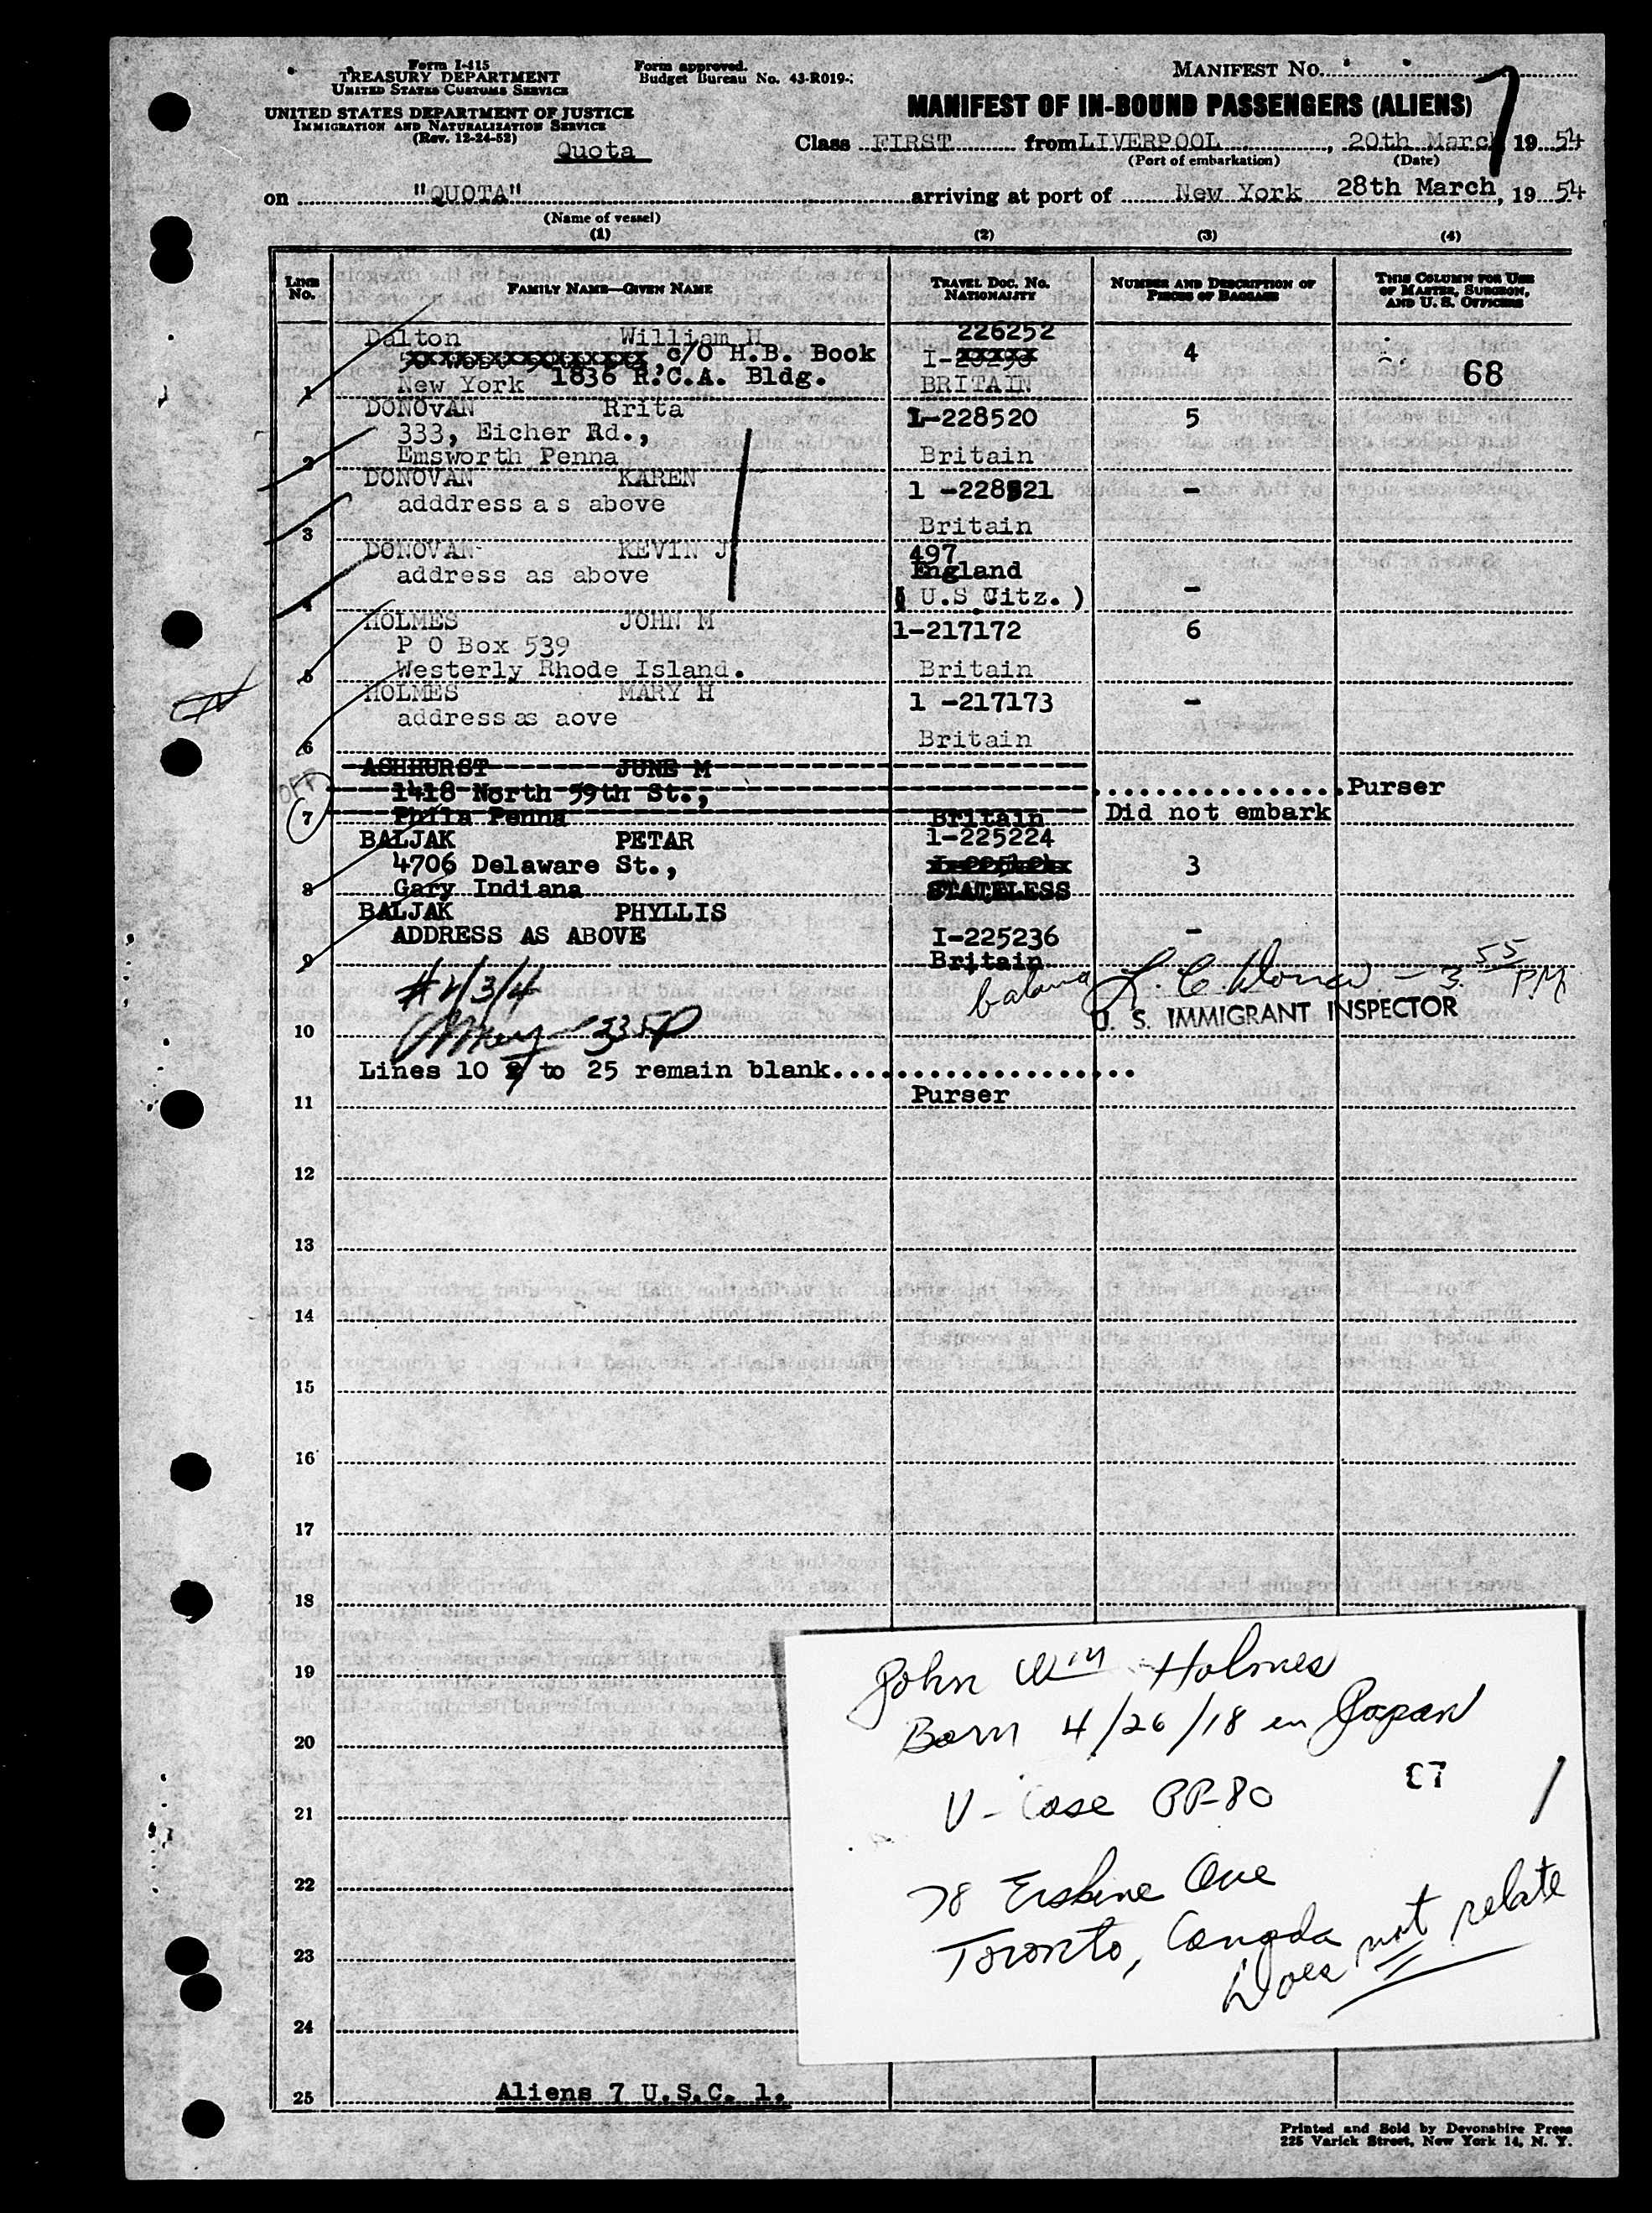 Form I-415
TREASURY DEPARTMENT
UNITED STATES CUSTOMS SERVICE
UNITED STATES DEPARTMENT OF JUSTICE
IMMIGRATION AND NATURALIZATION SERVICE
(Rev. 12-24-52)
Quota
Form approved.
Budget Bureau No. 43-R019-
MANIFEST NO.
MANIFEST OF IN-BOUND PASSENGERS (ALIENS)
Class FIRST from LIVERPOOL, 20th March 1954
(Port of embarkation) (Date)
on "QUOTA" arriving at port of New York 28th March, 1954
(Name of vessel)
(1) (2) (3) (4)
LINE NO. FAMILY NAME—GIVEN NAME TRAVEL DOC. NO. NATIONALITY NUMBER AND DESCRIPTION OF PIECES OF BAGGAGE THIS COLUMN FOR USE OF MASTER, SURGEON, AND U. S. OFFICERS
Dalton William H 226252
c/O H.B. Book I- 4 68
1 New York 1836 R.C.A. Bldg. BRITAIN
DONOvAN Rrita 1-228520 5
333, Eicher Rd.,
2 Emsworth Penna Britain
DONOVAN KAREN 1 -228521 -
adddress a s above
3 Britain
DONOVAN KEVIN J 497
address as above England
4 ( U.S Citz. ) -
HOLMES JOHN M 1-217172 6
P O Box 539
5 Westerly Rhode Island. Britain
HOLMES MARY H 1 -217173 -
address as aove
6 Britain
ASHHURST JUNE M
OFF 1418 North 59th St., Purser
7 Phila Penna Britain Did not embark
BALJAK PETAR 1-225224
4706 Delaware St., 3
8 Gary Indiana STATELESS
BALJAK PHYLLIS
ADDRESS AS ABOVE I-225236 -
9 Britain
#2/3/4
3.55 PM
U. S. IMMIGRANT INSPECTOR
10
Lines 10 to 25 remain blank
11 Purser
12
13
14
15
16
17
18
19
20
21
22
23
24
25 Aliens 7 U.S.C. 1.
John Wm Holmes
Born 4/26/18 in Japan
V-Case PP-80
78 Erskine Ave
Toronto, Canada
Does not relate
Printed and Sold by Devonshire Press
225 Varick Street, New York 14, N. Y.